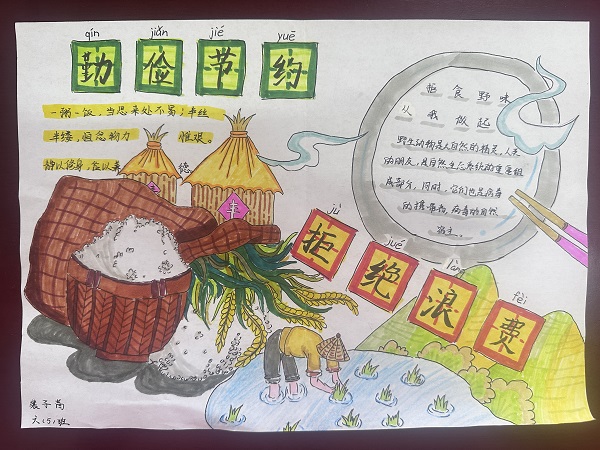 qín jiǎn jié yuē
勤俭节约
一粥一饭，当思来处不易；半丝
半缕，恒念物力 惟艰。
静以修身，俭以养 德
丰
丰
拒食野味
从我做起
野生动物是大自然的精灵，人类
的朋友，是自然生态系统的重要组
成部分，同时，它们也是病毒
的携带者，病毒的自然
宿主。
jù jué làng fèi
拒绝浪费
六（5）班